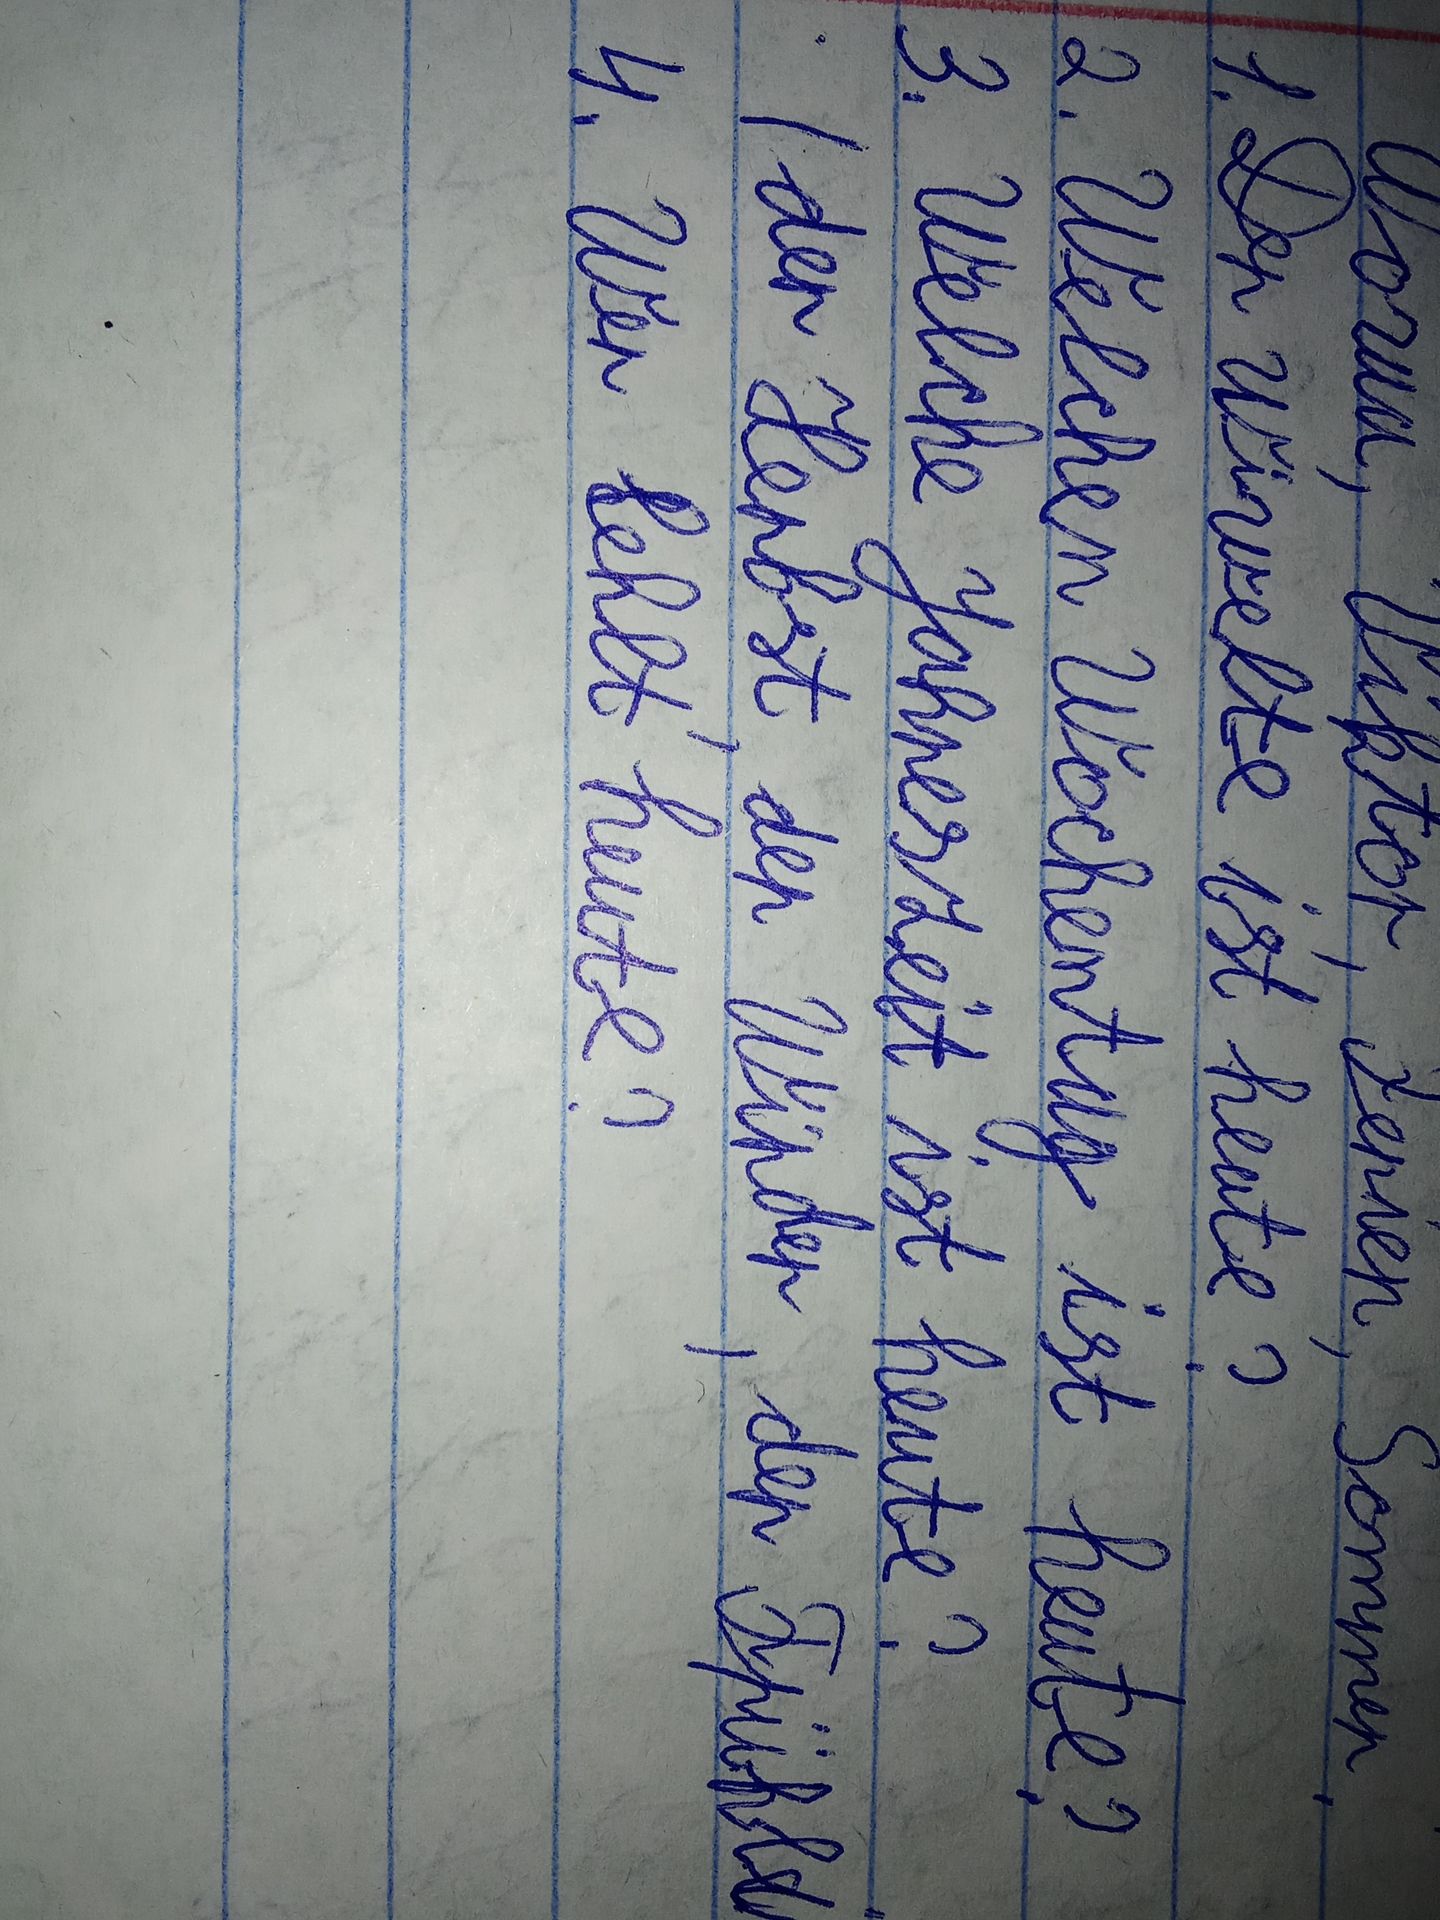 Viktor, Ferien, Sommer,
1. Der Wievelte ist heute?
2. Welchen Wochentag ist heute?
3. Welche Jahreszeit ist heute?
/ der Herbst, der Winder, der
4. Wer fehlt heute?